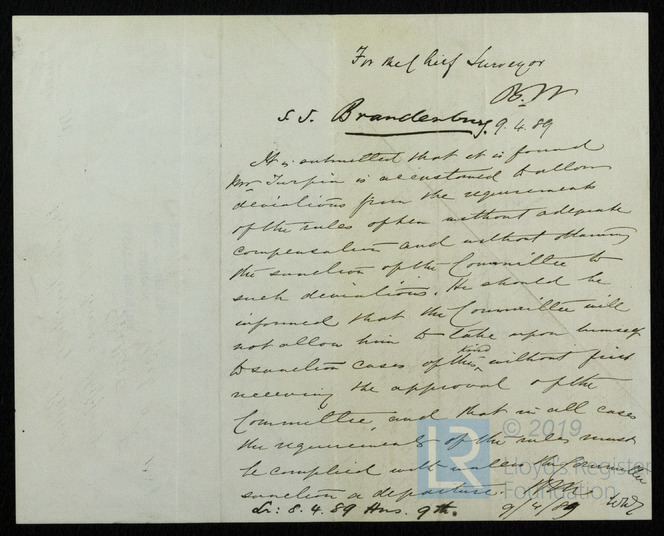 For the Chief Surveyor
B.W
S.S. Brandenburg. 9.4.89
It is submitted that it is found
Mr Turpin is accustomed to allow
deviations from the requirements
of the rules often without adequate
compensation and without obtaining
the sanction of the Committee to
such deviations. He should be
informed that the Committee will
not allow him to take upon himself
to sanction cases of this kind without first
receiving the approval of the
Committee, and that in all cases
the requirements of the rules must
be complied with unless the Committee
sanction a departure.
Lr: 8.4.89 Ans. 9th. 9/4/89
LR © 2019
Lloyd's Register
Foundation